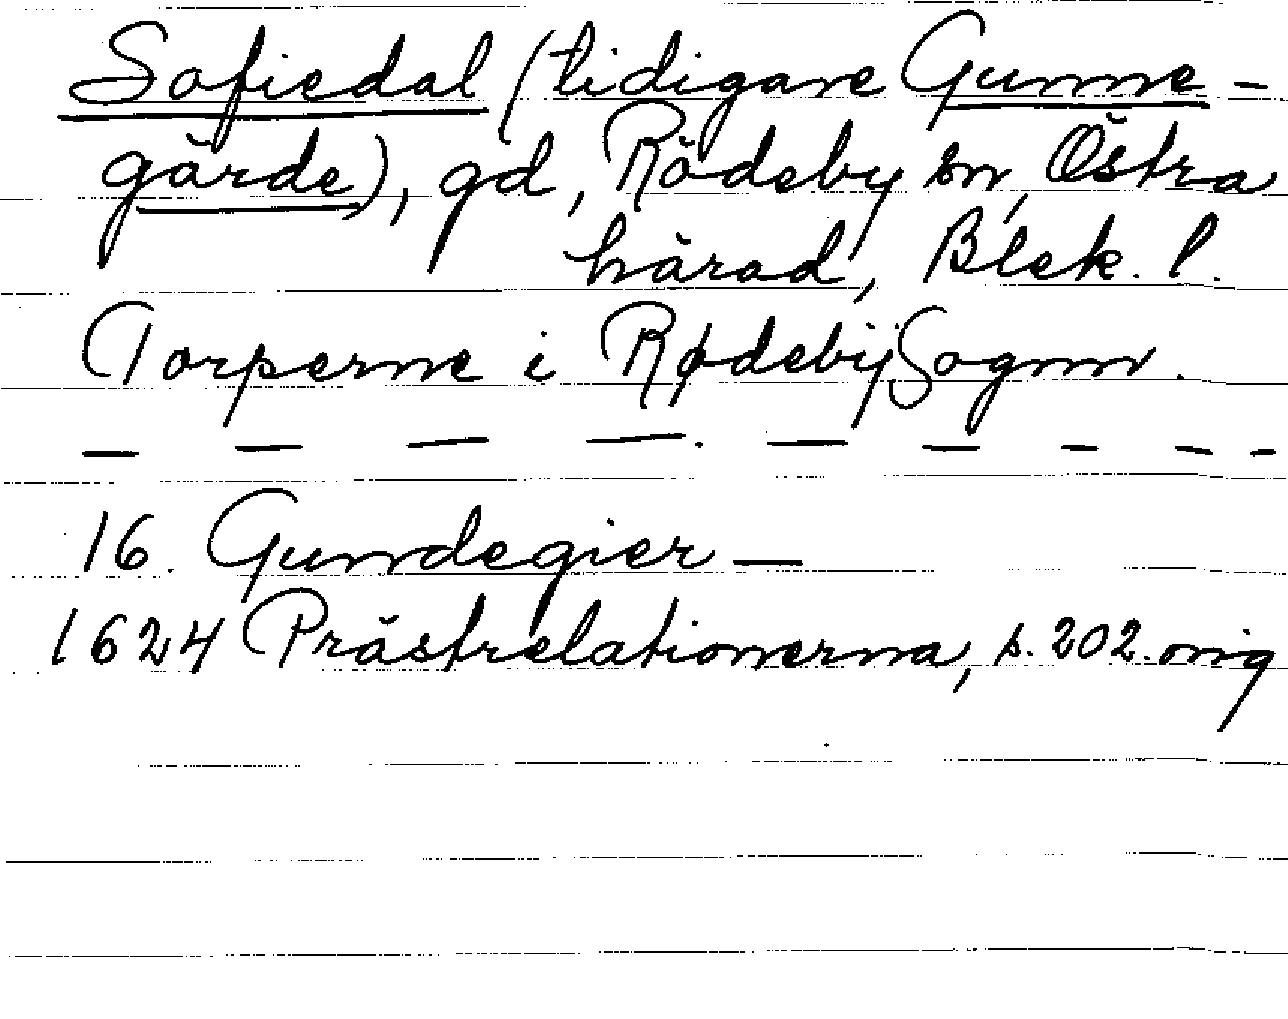 Sofiedal (tidigare Gunne-
gärde), gd, Rödeby sn, Östra
härad, Blek. l.
Torperne i Rødebÿ Sognn.
— — — —. — — — — —
16. Gundegier —
1624 Prästrelationerna, s. 202. orig